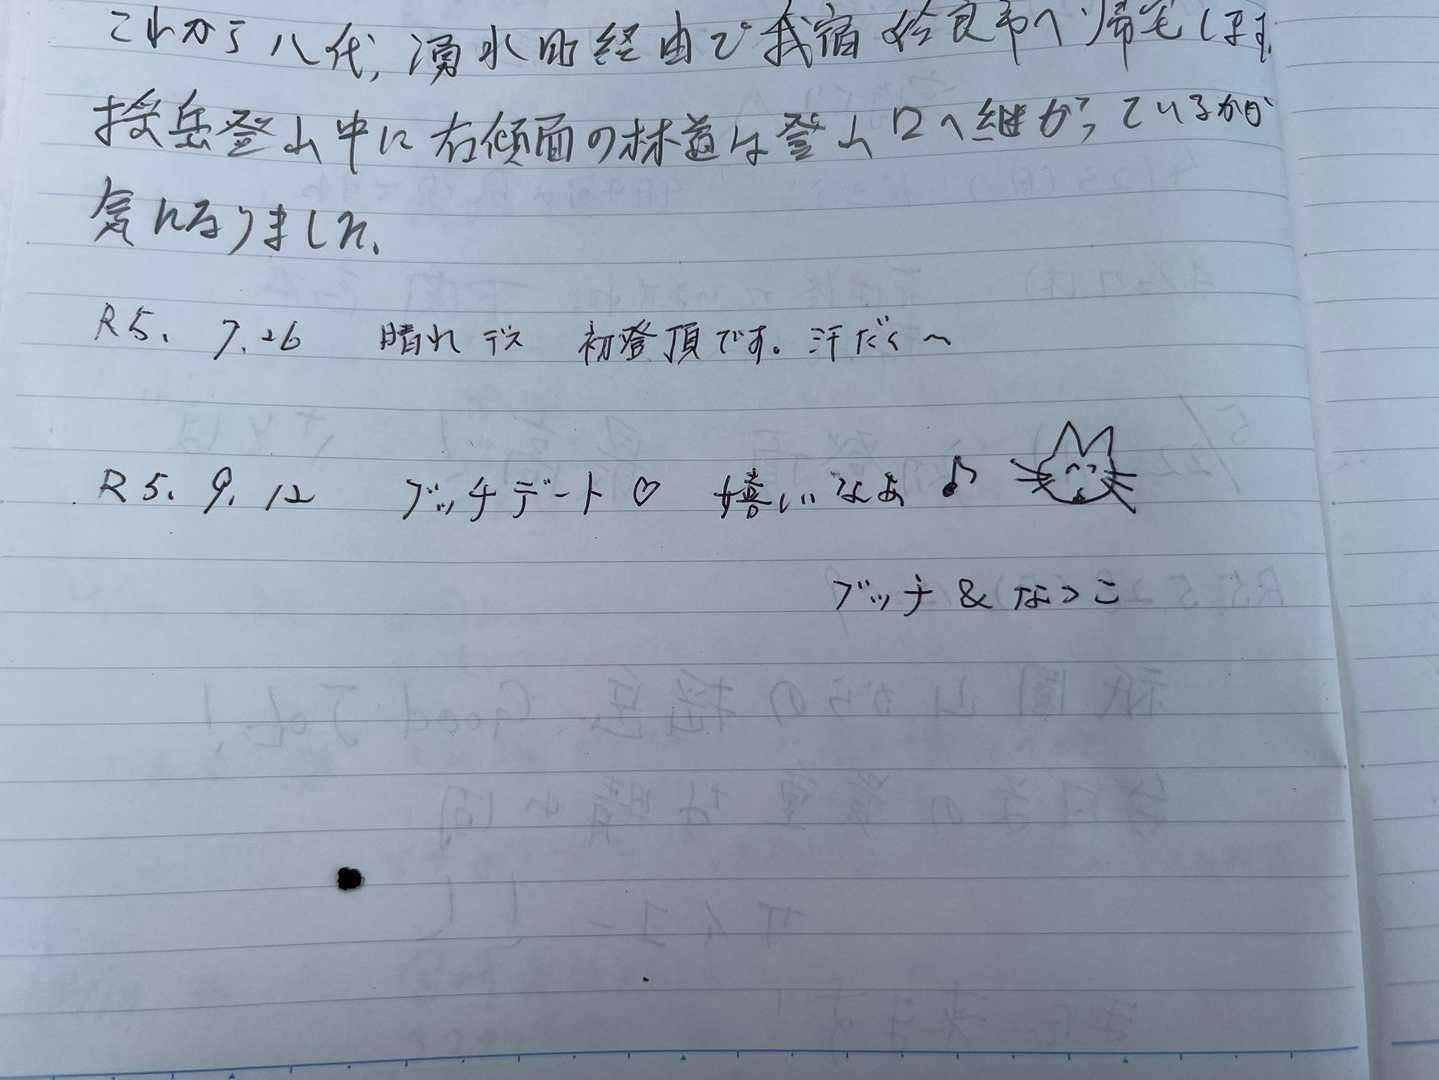 これから八代,湧水町経由で我宿姶良市へ帰宅します。
岳登山中に右傾面の林道は登山口へ継がっているかが
気になりました。
R5. 7.26 晴れデス 初登頂です。汗だく〜
R5. 9. 12 ブッチデート♡ 嬉しいなぁ♪
ブッチ & なつこ